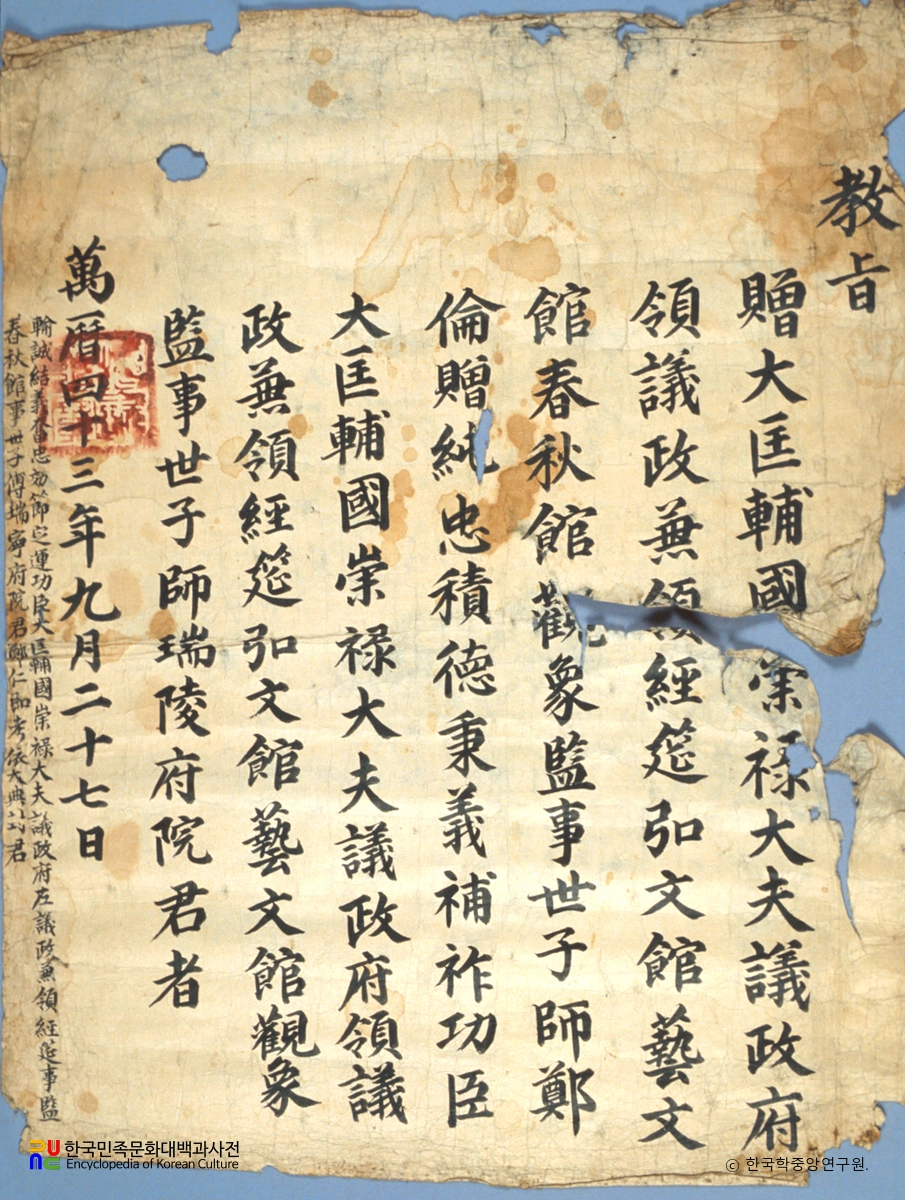 教旨
贈大匡輔國崇禄大夫議政府
領議政兼領經筵弘文館藝文
館春秋館觀象監事世子師鄭
倫贈純忠積徳秉義補祚功臣
大匡輔國崇禄大夫議政府領議
政兼領經筵弘文館藝文館觀象
監事世子師瑞陵府院君者
萬暦四十三年九月二十七日
輸誠結義奮忠効節定運功臣大匡輔國崇禄大夫議政府左議政兼領經筵事監
春秋館事世子傅瑞寧府院君鄭仁弘考依大典封君
한국민족문화대백과사전
Encyclopedia of Korean Culture
ⓒ 한국학중앙연구원.